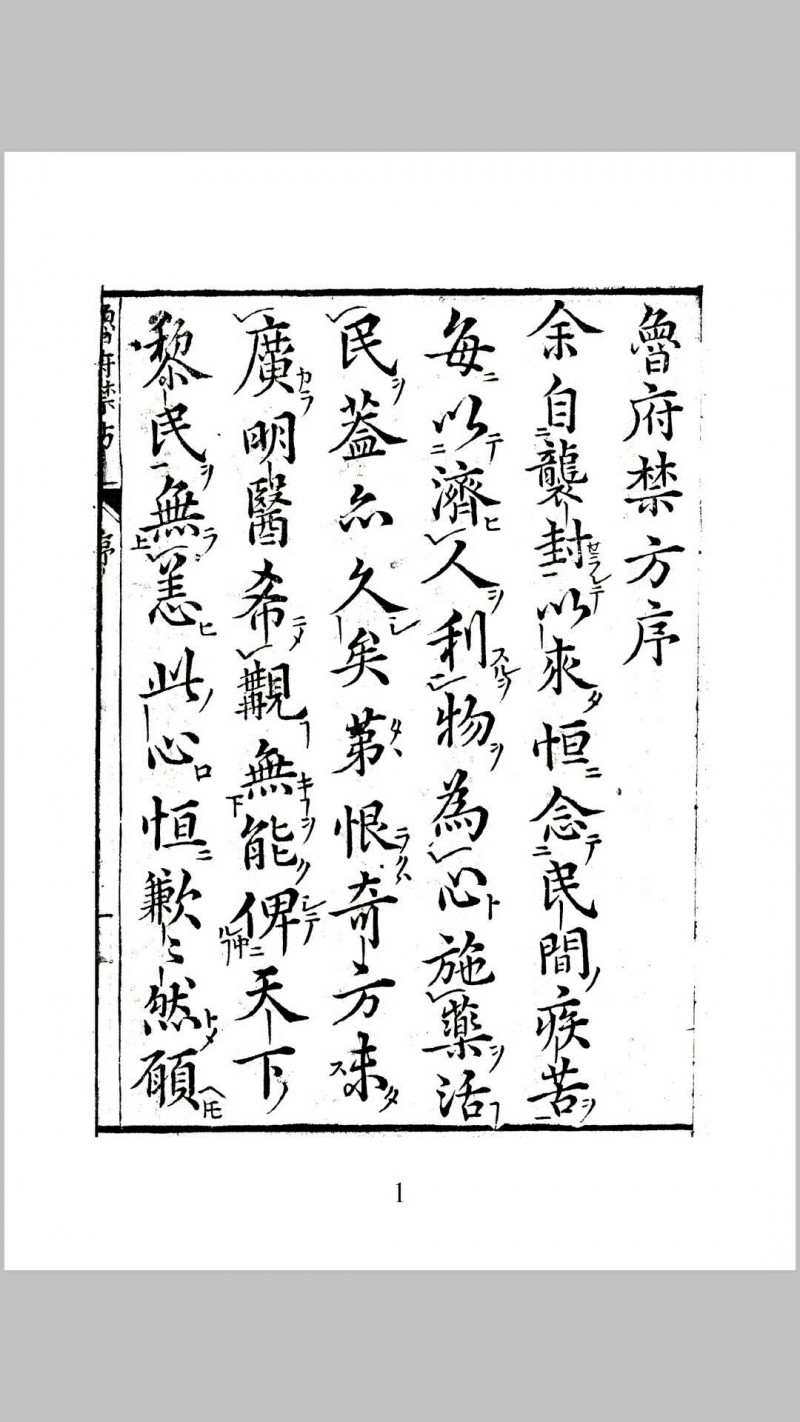 魯府禁方序
余自襲封以來恒念民間疾苦
每以濟人利物為心施藥活
民蓋亦久矣第恨奇方未
廣明醫希覯無能俾天下
黎民無恙此心恒歉〻然願
魯府禁方 序
1